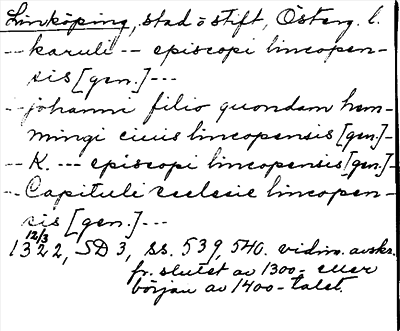 Linköping, stad o stift, Österg. l.
-- karuli -- episcopi lincopen-
sis [gen.] ---
-- johanni filio quondam hem-
mingi ciuis lincopensis [gen.] -
-- K. --- episcopi lincopensis [gen.] -
-- Capituli ecclesie lincopen-
sis [gen.] ---
12/3
1322, SD 3, ss. 539, 540. vidim. avskr.
fr. slutet av 1300- eller
början av 1400-talet.